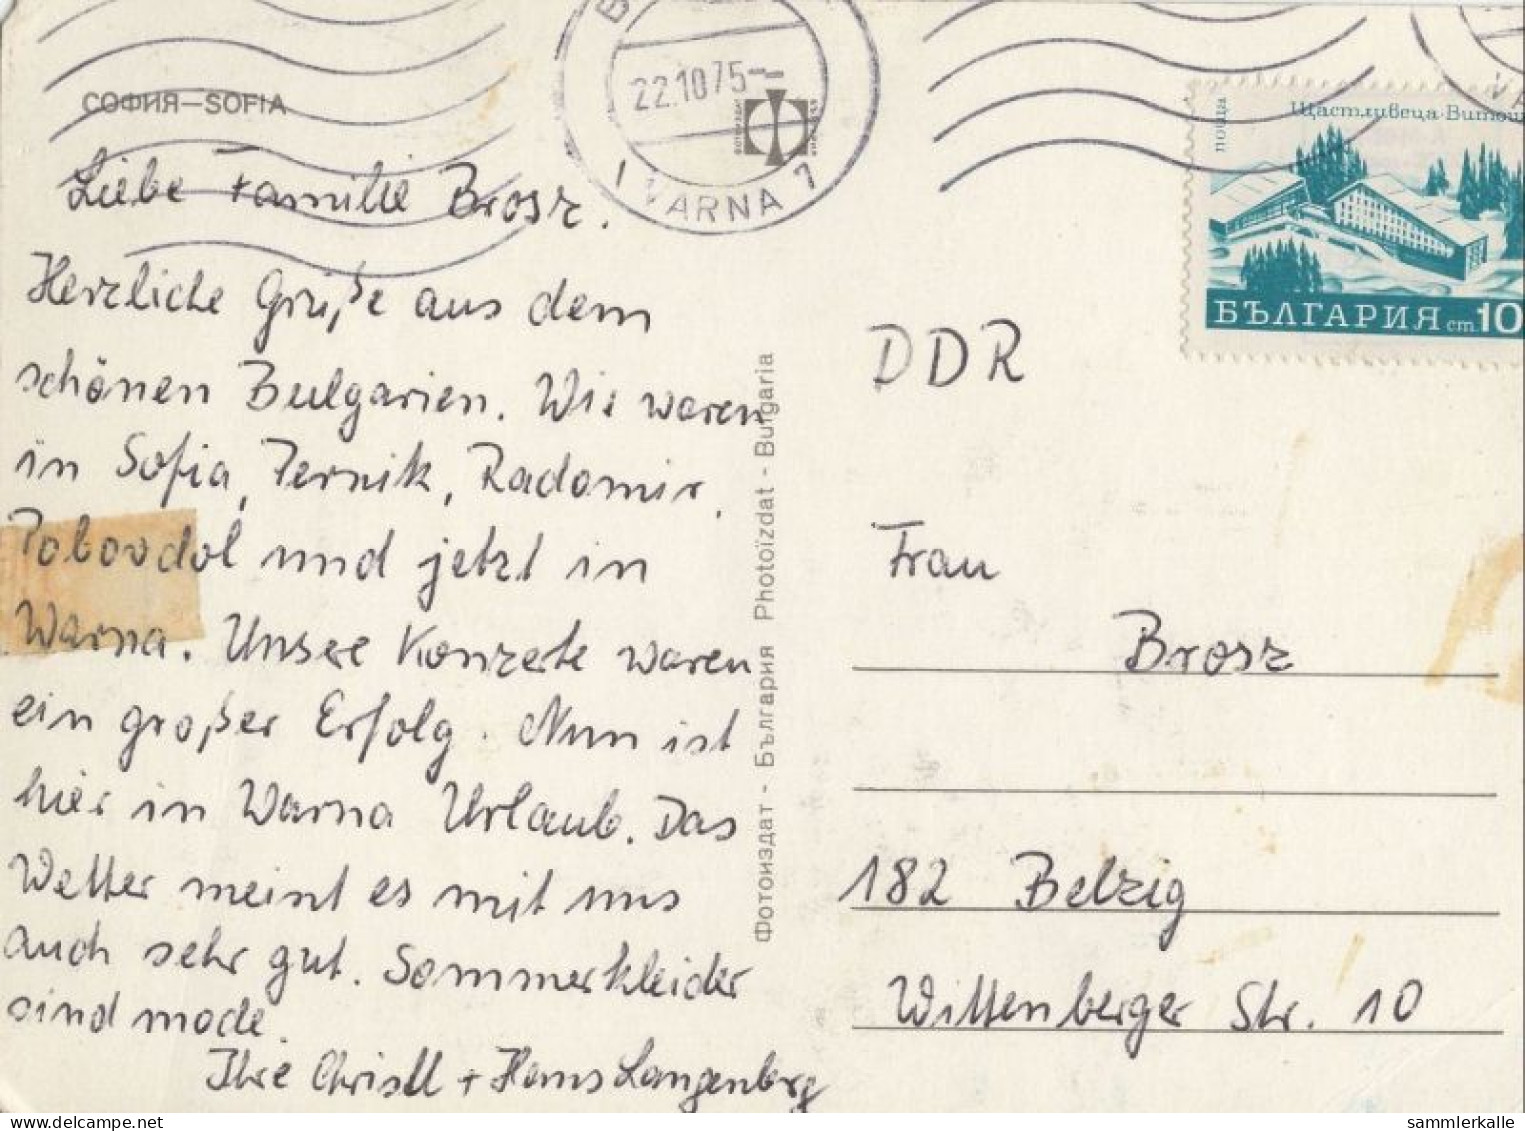 СОФИЯ—SOFIA
22.10.75
VARNA 7
поща
Щастливеца·Витош
БЪЛГАРИЯ ст.10
Liebe Familie Brosz.
Herzliche Grüße aus dem
schönen Bulgarien. Wir waren
in Sofia, Pernik, Radomir,
Bobovdol und jetzt in
Warna. Unsere Konzerte waren
ein großer Erfolg. Nun ist
hier in Warna Urlaub. Das
Wetter meint es mit uns
auch sehr gut. Sommerkleider
sind mode.
Ihre Christl + Hans Langenberg
Фотоиздат - България Photoïzdat - Bulgaria
DDR
Frau
Brosz
182 Belzig
Wittenberger Str. 10
sammlerkalle